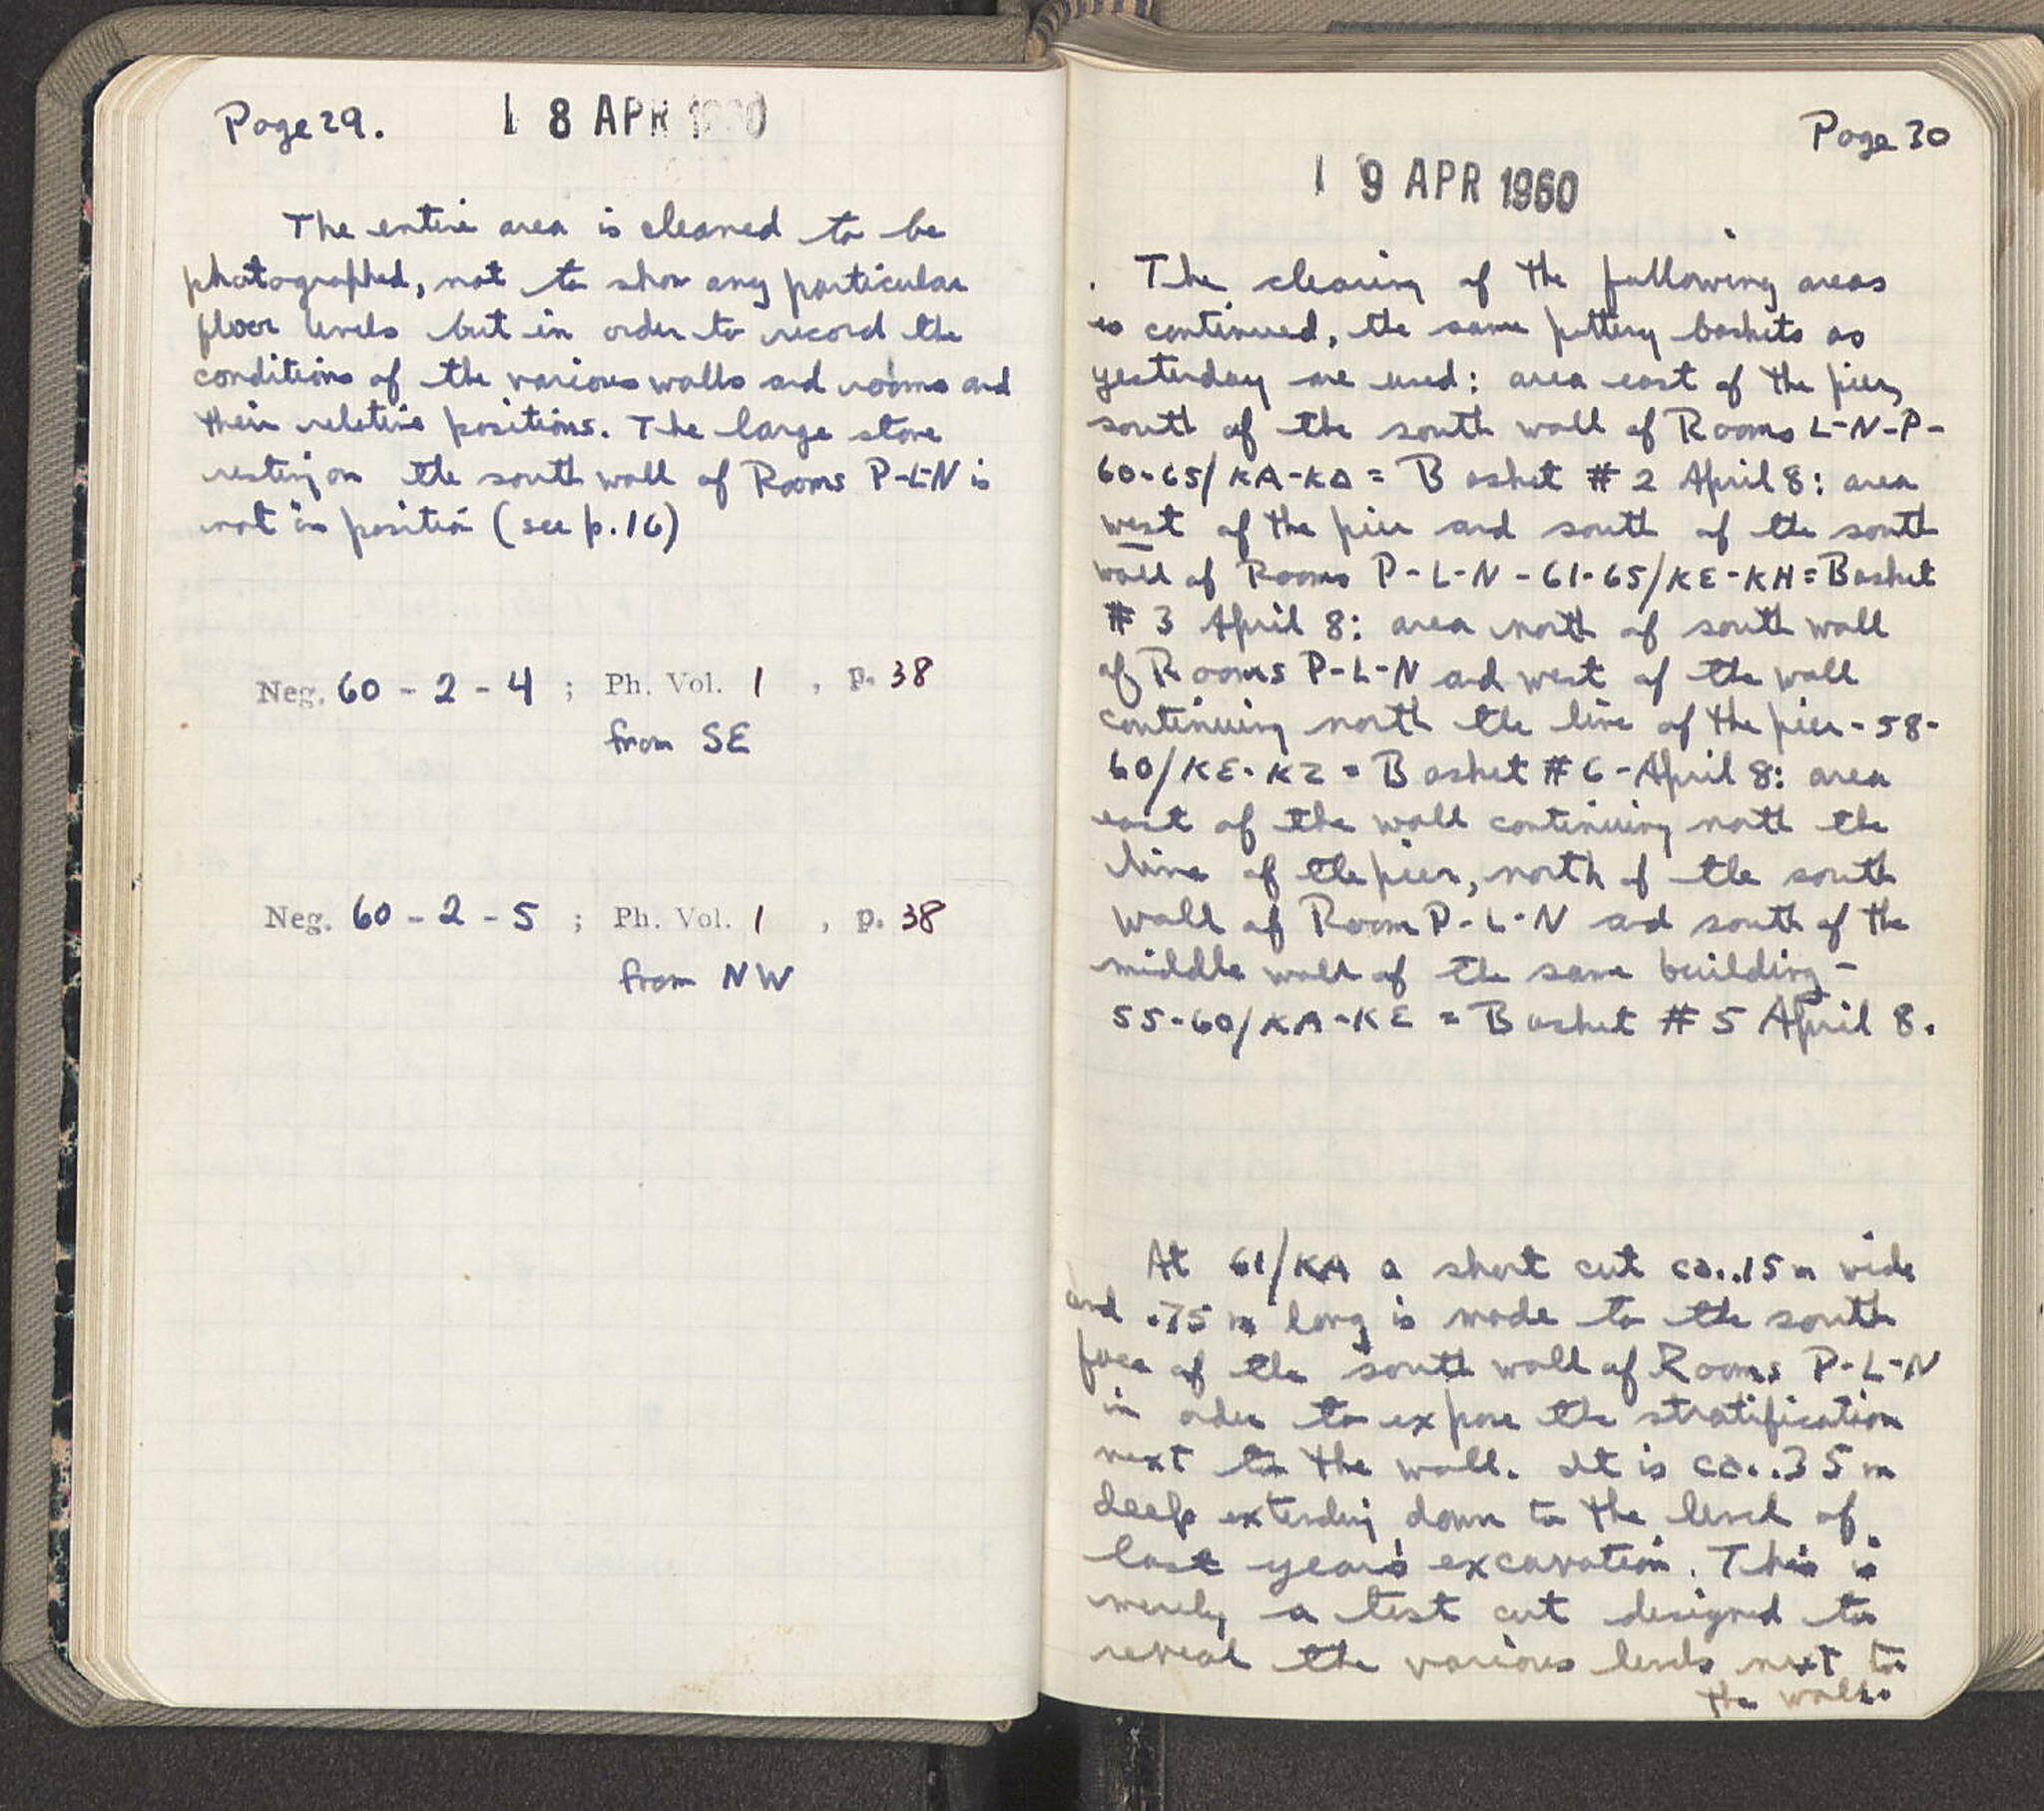 Page 29.
18 APR 1960
The entire area is cleaned to be
photographed, not to show any particular
floor levels but in order to record the
conditions of the various walls and rooms and
their relative positions. The large stone
resting on the south wall of Rooms P-L-N is
not in position (see p.16)
Neg. 60 - 2 - 4 ; Ph. Vol. 1 , p. 38
from SE
Neg. 60 - 2 - 5 ; Ph. Vol. 1 , p. 38
from NW
Page 30
19 APR 1960
The clearing of the following areas
is continued, the same pottery baskets as
yesterday are used: area east of the pier,
south of the south wall of Rooms L-N-P-
60-65/KA-KΔ = Basket #2 April 8: area
west of the pier and south of the south
wall of Rooms P-L-N - 61-65/KE-KH = Basket
#3 April 8: area north of south wall
of Rooms P-L-N and west of the wall
continuing north the line of the pier - 58-
60/KE-KZ = Basket #6 - April 8: area
east of the wall continuing north the
line of the pier, north of the south
wall of Room P-L-N and south of the
middle wall of the same building -
55-60/KA-KE = Basket #5 April 8.
At 61/KA a short cut ca. .15 m wide
and .75 m long is made to the south
face of the south wall of Rooms P-L-N
in order to expose the stratification
next to the wall. It is ca. .35 m
deep extending down to the level of
last year's excavation. This is
merely a test cut designed to
reveal the various levels next to
the walls.